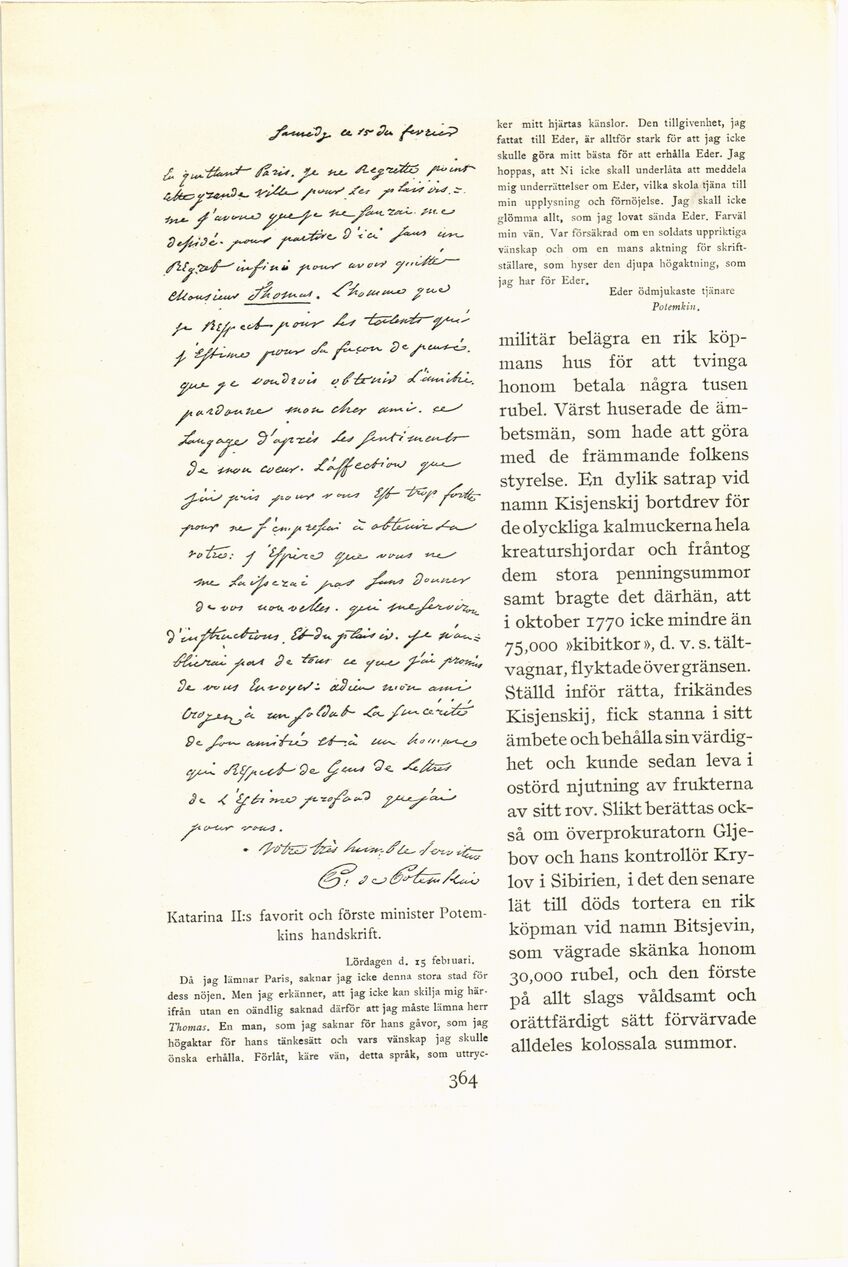 Samedy ce 15 du fevrier
En quittant Paris. Je ne Regrette point
cette grande Ville pour Les plaisirs. =
me j'avoue que je ne saurai me
deside. pour partire d'ici sans un
Regret infini pour avoir quitté
Monsieur Thomas. L'homme que
je Respect pour les talents qui
j'Estime pour Sa façon de pensé.
que je voudrois obtenir L'amitié.
pardonne mon cher ami. ce
Langage d'après Les sentiments
de mon coeur. L'affection que
j'ai pris pour vous Est trop forte
pour ne j'empresai à obtenir La
votre: j'Espere que vous ne
me Laisserai pas sans donner
de vos nouvelles. qui me serviron
d'instructions. Et du plaisir. je n'ou=
blierai pas de tout ce que j'ai promis
de vous Envoyer: adieu mon ami
Croyez à un soldat La sincerité
de son amitié et à un homme
qui Respect de Gens de Lettres
de L'Estime profond que j'ai
pour vous.
Votre très humble Serviteu
G: de Potemkin
Katarina II:s favorit och förste minister Potem-
kins handskrift.
Lördagen d. 15 februari.
Då jag lämnar Paris, saknar jag icke denna stora stad för
dess nöjen. Men jag erkänner, att jag icke kan skilja mig här-
ifrån utan en oändlig saknad därför att jag måste lämna herr
Thomas. En man, som jag saknar för hans gåvor, som jag
högaktar för hans tänkesätt och vars vänskap jag skulle
önska erhålla. Förlåt, käre vän, detta språk, som uttryc-
ker mitt hjärtas känslor. Den tillgivenhet, jag
fattat till Eder, är alltför stark för att jag icke
skulle göra mitt bästa för att erhålla Eder. Jag
hoppas, att Ni icke skall underlåta att meddela
mig underrättelser om Eder, vilka skola tjäna till
min upplysning och förnöjelse. Jag skall icke
glömma allt, som jag lovat sända Eder. Farväl
min vän. Var försäkrad om en soldats uppriktiga
vänskap och om en mans aktning för skrift-
ställare, som hyser den djupa högaktning, som
jag har för Eder.
Eder ödmjukaste tjänare
Potemkin.
militär belägra en rik köp-
mans hus för att tvinga
honom betala några tusen
rubel. Värst huserade de äm-
betsmän, som hade att göra
med de främmande folkens
styrelse. En dylik satrap vid
namn Kisjenskij bortdrev för
de olyckliga kalmuckerna hela
kreaturshjordar och fråntog
dem stora penningsummor
samt bragte det därhän, att
i oktober 1770 icke mindre än
75,000 »kibitkor», d. v. s. tält-
vagnar, flyktade över gränsen.
Ställd inför rätta, frikändes
Kisjenskij, fick stanna i sitt
ämbete och behålla sin värdig-
het och kunde sedan leva i
ostörd njutning av frukterna
av sitt rov. Slikt berättas ock-
så om överprokuratorn Glje-
bov och hans kontrollör Kry-
lov i Sibirien, i det den senare
lät till döds tortera en rik
köpman vid namn Bitsjevin,
som vägrade skänka honom
30,000 rubel, och den förste
på allt slags våldsamt och
orättfärdigt sätt förvärvade
alldeles kolossala summor.
364